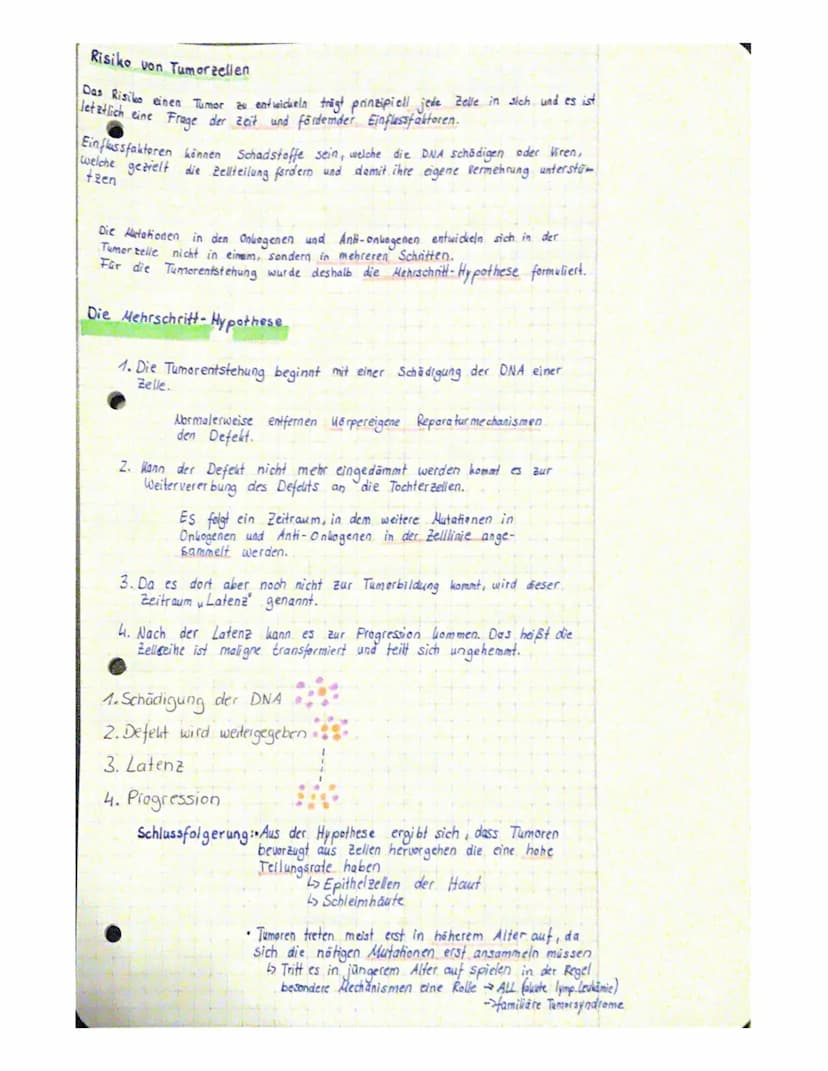 Risiko von Tumorzellen
Das Risiko einen Tumor zu entwickeln trägt prinzipiell jede Zelle in sich und es ist
letztlich eine Frage der Zeit und fördernder Einflussfaktoren.
Einflussfaktoren können Schadstoffe sein, welche die DNA schädigen oder Viren,
welche gezielt die Zellteilung fördern und damit ihre eigene Vermehrung unterstüt-
tzen
Die Mutationen in den Onkogenen und Anti-onkogenen entwickeln sich in der
Tumorzelle nicht in einem, sondern in mehreren Schritten.
Für die Tumorentstehung wurde deshalb die Mehrschritt-Hypothese formuliert.
Die Mehrschritt-Hypothese
1. Die Tumorentstehung beginnt mit einer Schädigung der DNA einer
Zelle.
Normalerweise entfernen körpereigene Reparaturmechanismen
den Defekt.
2. Kann der Defekt nicht mehr eingedämmt werden kommt es zur
Weitervererbung des Defekts an die Tochterzellen.
Es folgt ein Zeitraum, in dem weitere Mutationen in
Onkogenen und Anti-Onkogenen in der Zelllinie ange-
sammelt werden.
3. Da es dort aber noch nicht zur Tumorbildung kommt, wird dieser
Zeitraum „Latenz" genannt.
4. Nach der Latenz kann es zur Progression kommen. Das heißt die
Zellreihe ist maligne transformiert und teilt sich ungehemmt.
1. Schädigung der DNA
2. Defekt wird weitergegeben
3. Latenz
4. Progression
Schlussfolgerung: • Aus der Hypothese ergibt sich, dass Tumoren
bevorzugt aus Zellen hervorgehen die eine hohe
Teilungsrate haben
↳ Epithelzellen der Haut
↳ Schleimhäute
• Tumoren treten meist erst in höherem Alter auf, da
sich die nötigen Mutationen erst ansammeln müssen
↳ Tritt es in jüngerem Alter auf spielen in der Regel
besondere Mechanismen eine Rolle → ALL (akute lymp. Leukämie)
→ familiäre Tumorsyndrome